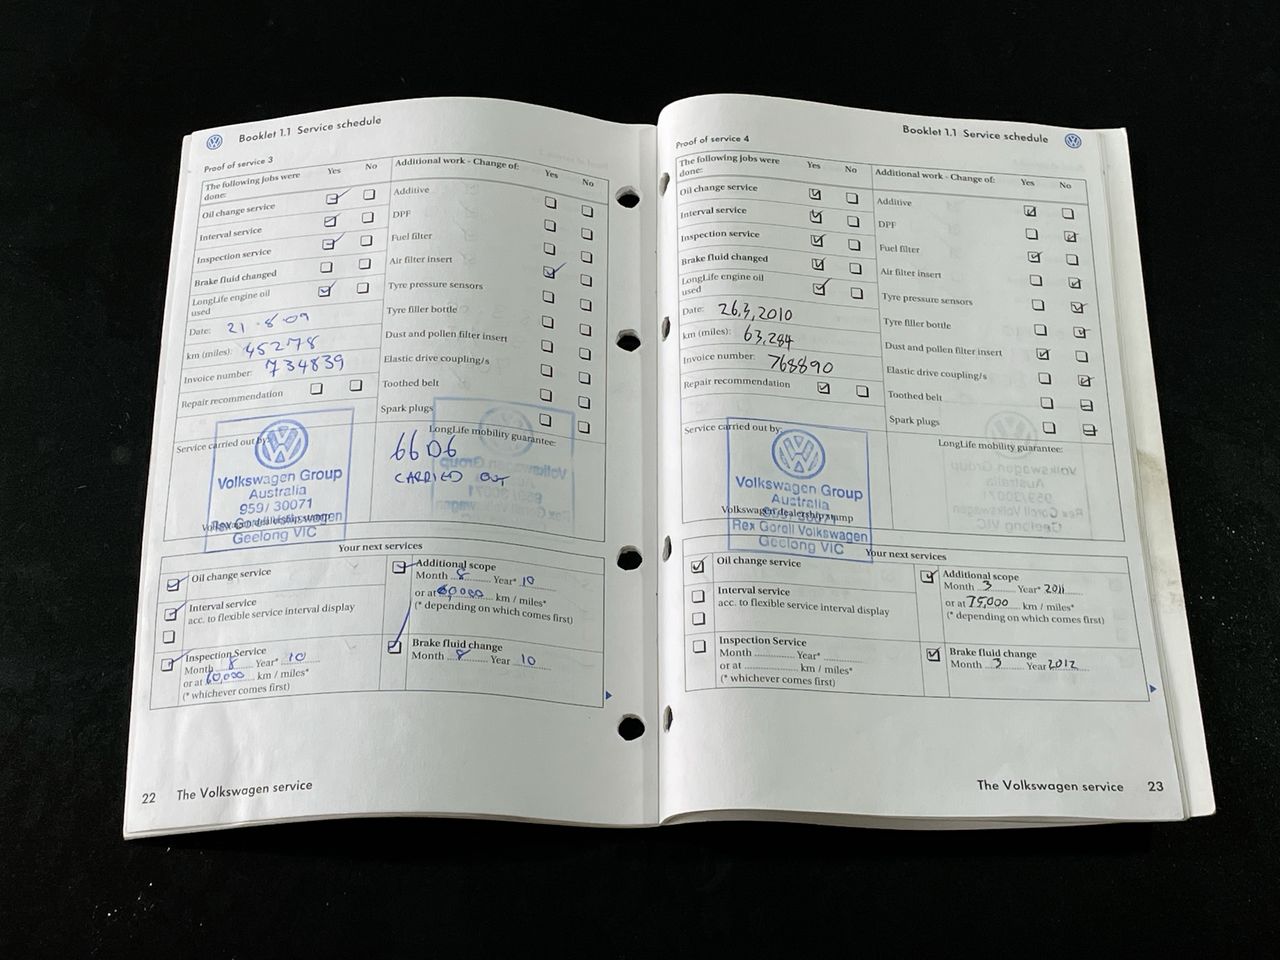 Booklet 1.1 Service schedule
Proof of service 3
The following jobs were done:
Yes
No
Additional work - Change of:
Yes
No
Oil change service
Interval service
Inspection service
Brake fluid changed
LongLife engine oil used
Date: 21-8-09
km (miles): 45278
Invoice number: 734839
Repair recommendation
Additive
DPF
Fuel filter
Air filter insert
Tyre pressure sensors
Tyre filler bottle
Dust and pollen filter insert
Elastic drive coupling/s
Toothed belt
Spark plugs
Service carried out by:
Volkswagen Group
Australia
959/ 30071
Rex Gorell Volkswagen
Geelong VIC
Volkswagen dealership stamp
LongLife mobility guarantee:
66D6
CARRIED OUT
Your next services
Oil change service
Interval service
acc. to flexible service interval display
Inspection Service
Month 8 Year* 10
or at 60,000 km / miles*
(* whichever comes first)
Additional scope
Month 8 Year* 10
or at 60,000 km / miles*
(* depending on which comes first)
Brake fluid change
Month 8 Year 10
22 The Volkswagen service
Booklet 1.1 Service schedule
Proof of service 4
The following jobs were done:
Yes
No
Additional work - Change of:
Yes
No
Oil change service
Interval service
Inspection service
Brake fluid changed
LongLife engine oil used
Date: 26,3,2010
km (miles): 63,284
Invoice number: 768890
Repair recommendation
Additive
DPF
Fuel filter
Air filter insert
Tyre pressure sensors
Tyre filler bottle
Dust and pollen filter insert
Elastic drive coupling/s
Toothed belt
Spark plugs
Service carried out by:
Volkswagen Group
Australia
959/ 30071
Volkswagen dealership stamp
Rex Gorell Volkswagen
Geelong VIC
LongLife mobility guarantee:
Your next services
Oil change service
Interval service
acc. to flexible service interval display
Inspection Service
Month Year*
or at km / miles*
(* whichever comes first)
Additional scope
Month 3 Year* 2011
or at 75,000 km / miles*
(* depending on which comes first)
Brake fluid change
Month 3 Year 2012
The Volkswagen service 23